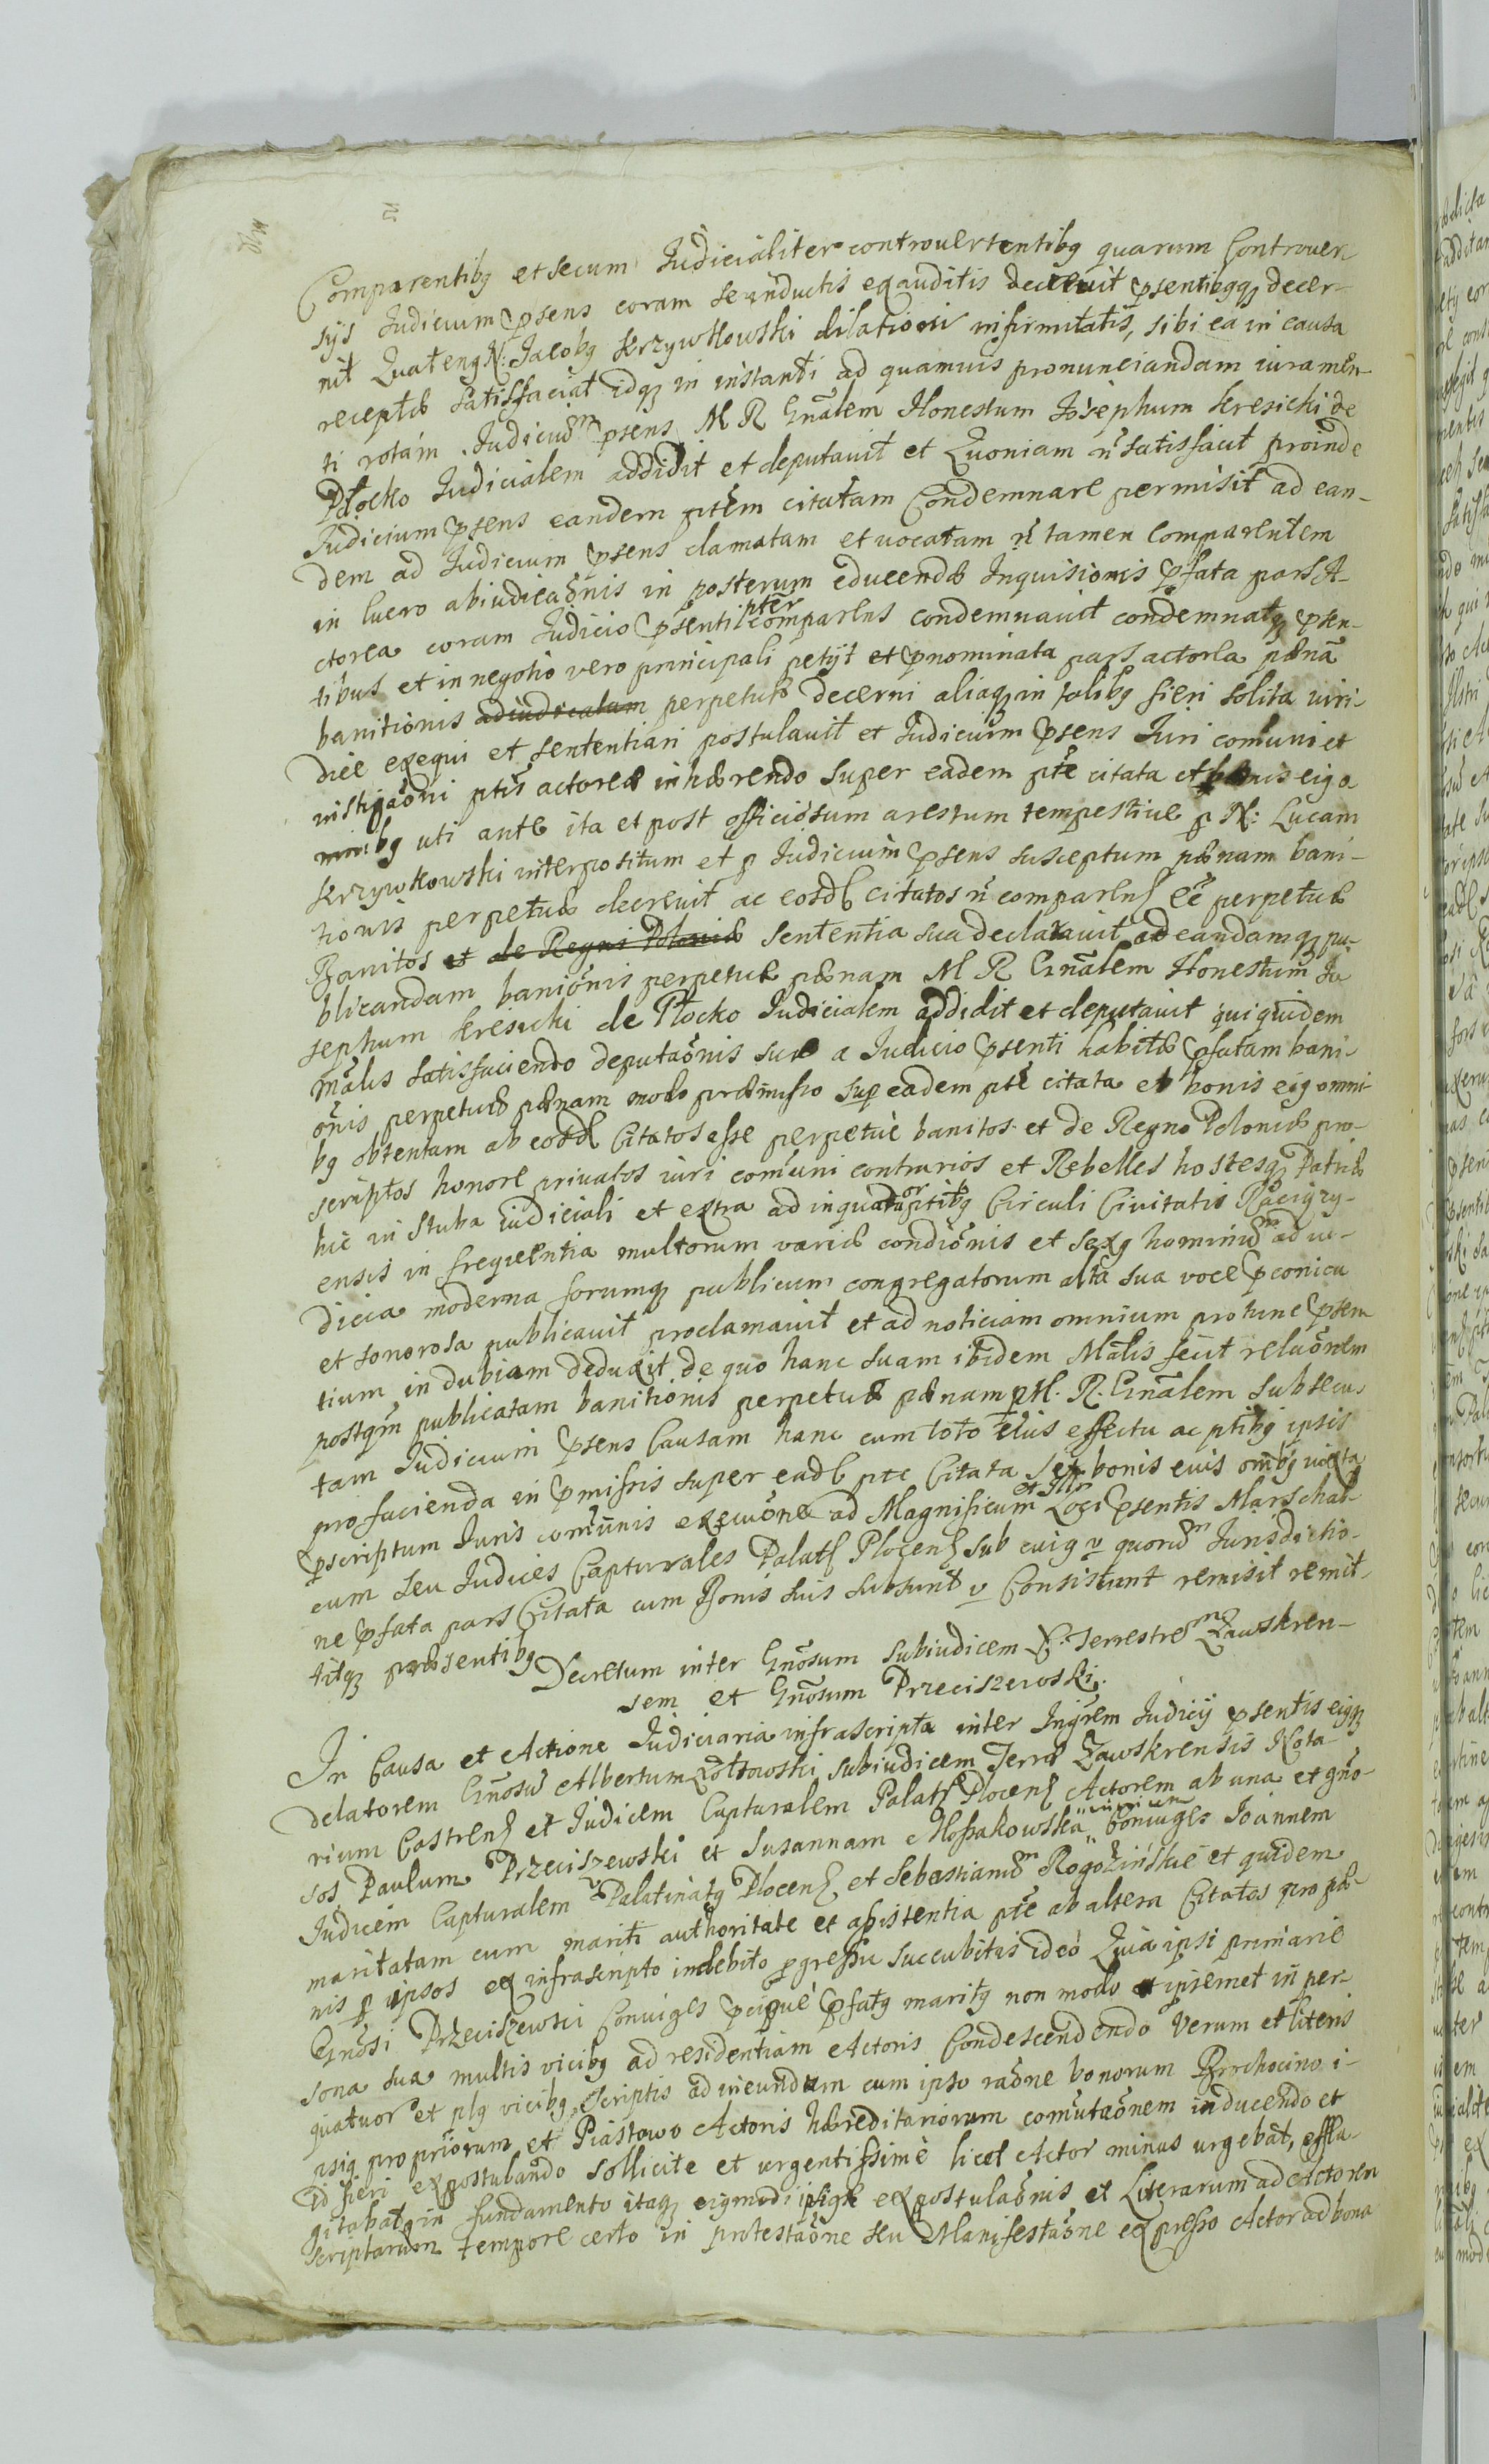 Comparentibꝫ et secum Iudicialiter controuertentibꝫ quarum Controuer
sijs Iudicium pṡens coram se inductis exauditis decreuit pṡentibꝫqꝫ decer-
nit Quatenꝫ N: Iacobꝫ Krzywkowski dilationi infirmitatis, sibi ea in causa
receptæ satisfaciat idqꝫ in instanti ad quamuis pronunciandam iuramen-
ti rotam Iudiciũm pṡens M R Gñalem Honestum Iosephum Kresicki de
Płocko Iudicialem addidit et deputauit et Quoniam ñ satisfacit proinde
Iudicium pṡens eandem ptẽm citatam Condemnare permisit ad ean-
dem ad Iudicium pṡens clamatam et uocatam ñ tamen Comparentem
in lucro abiudicãonis in posterum educendæ Inquisionis pfata pars A-
ctorea coram Iudicio pṡenti ptẽr comparens condemnauit condemnatqꝫ pṡen-
tibus et in negotio vero principali petijt et pnominata pars actorea pænã
banitionis adiudicatam perpetuæ decerni aliaqꝫ in talibꝫ fieri solita uiri-
dice exequi et sententiari postulauit et Iudicium pṡens Iuri comuni et
instigãoni ptis actoreæ inhærendo super eadem ptẽ citata et bonis eiꝫ o
mnibꝫ uti ante ita et post officiosum arestum tempestiue p N: Lucam
Krzywkowski interpositum et p Iudicium pṡens susceptum pænam bani-
tionis perpetuæ decreuit ac eosdẽ citatos ñ comparenꝭ eẽ perpetuæ
Banitos et de Regni Poloniæ sententia sua declarauit ad eandamqꝫ pu-
blicandam baniõnis perpetuæ pænam M R Gñalem Honestum Io
sephum Kresicki de Płocko Iudicialem addidit et deputauit qui quidem
Mãlis satisfaciendo deputãonis suæ a Iudicio pṡenti habitæ pfatam bani-
õnis perpetuæ pænam modo præmisso sup eadem ptẽ citata et bonis eiꝫ omni-
bꝫ obtentam ab eosdẽ Citatos esse perpetùe banitos et de Regno Poloniæ pro-
scriptos honore priuatos iuri comuni contrarios et Rebelles hostesqꝫ Patriæ
hic in stuba iudiciali et extra ad in quatuor ptibꝫ Circuli Ciuitatis Raciąży-
ensis in frequentia multorum variæ condiõnis et sexꝫ hominũm ad iu-
dicia moderna forumqꝫ publicum congregatorum alta sua voce pconica
et sonorosa publicauit proclamauit et ad noticiam omnium protunc pṡen
tium in dubiam deduxit de quo hanc suam ibidem Mãlis fecit relãonem
postqm̃ publicatam banitionis perpetuæ pænam p M. R. Gñalem subsecu
tam Iudicium pṡens Causam hanc cum toto eius effectu ac ptibꝫ ipsis
pro facienda in pmissis super eadẽ pte Citata et bonis euis omibꝫ iuxta
pscriptum Iuris comunis executiõne ad Magnificum et Illr Loci pṡentis Marschal-
cum seu Iudices Capturales Palatꝭ Plocenꝭ sub cuiꝫ v quorũm Iurisdictio-
ne pfata pars Citata cum Bonis suis subsunt v Consistunt remisit remit-
titqꝫ præsentibꝫ
Decretum inter Gñosum Subiudicem S. Terrestrem Zawskren-
sem et Gñosum Przeciszewski.
In Causa et Actione Iudiciaria infrascripta inter Ingrem Iudicij pṡentis eiꝫqꝫ
delatorem Gñosũ Albertum Zołtowski Subiudicem Terræ Zawskrensis Nota-
rium Castrenꝭ et Iudicem Capturalem Palatꝭ Plocenꝭ Actorem ab una et gño-
sos Paulum Przeciszewski et Susannam Mossakowska Coniuges Ioannem
Iudicem Capturalem Palatinatꝫ Plocenꝭ et Sebastianũm Rogozińskie et quidem
maritatam cum mariti authoritate et assistentia ptẽ ab altera Citatos pro pæ-
nis p ipsos ex infrascripto indebito pgressu succubitis ideo Quia ipsi primarie
Gñosi Przeciszewski Coniuges pcipue pfatꝫ maritꝫ non modo et ipsemet in per-
sona sua multis vicibꝫ ad residentiam Actoris Condescendendo Verum et literis
quatuor et plꝫ vicibꝫ scriptis ad ineundum cum ipso rãone bonorum Brochocino i-
psiꝫ propriorum et Piastowo Actoris hæreditariorum comutãonem inducendo et
id fieri expostulando sollicite et urgentissimè licet Actor minus urgebat, effla-
gitabat qin fundamento itaqꝫ eiꝫmodi ipsiꝫ expostulãonis et Literarum ad Actorem
scriptarum tempore certo in protestãone seu Manifestãone expresso Actor ad bona